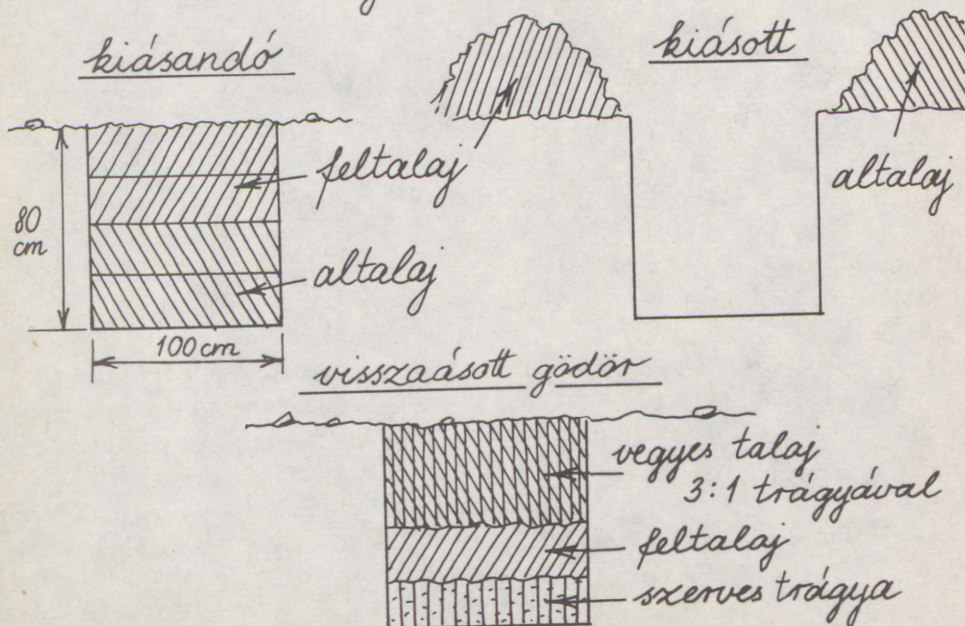 kiásandó
kiásott
80
cm
feltalaj
altalaj
altalaj
100 cm
visszaásott gödör
vegyes talaj
3:1 trágyával
feltalaj
szerves trágya